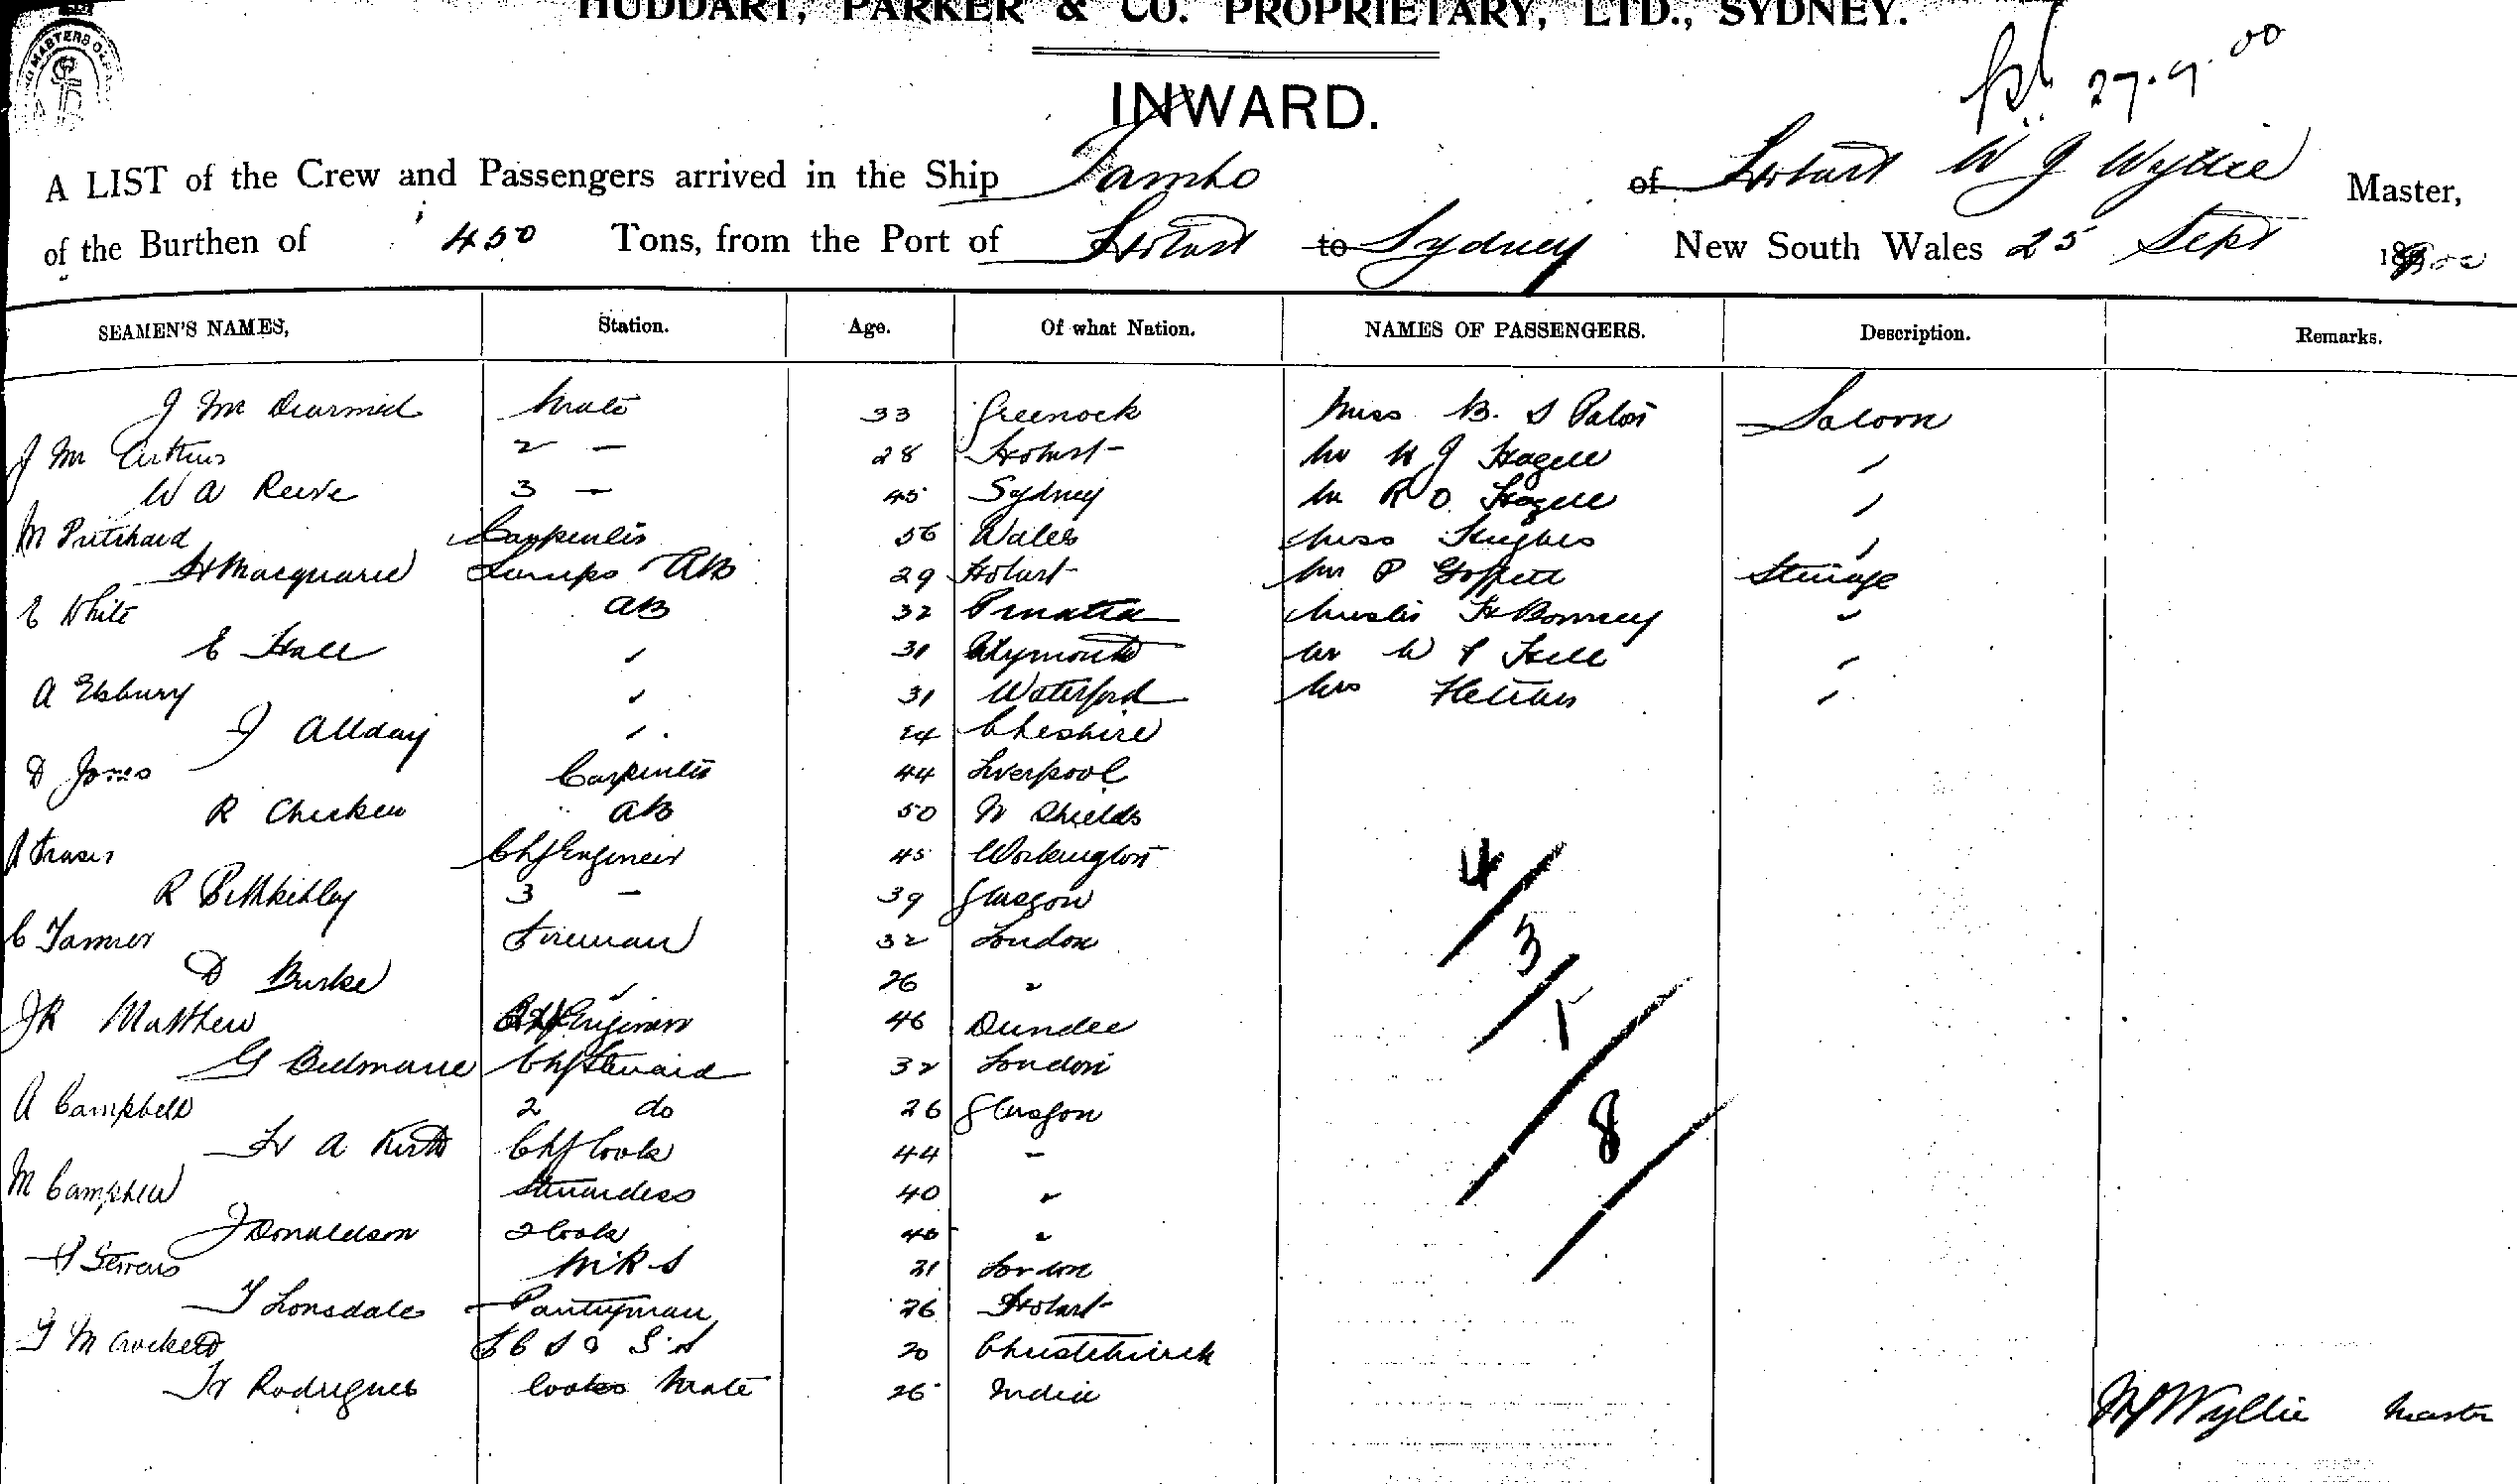 HUDDART, PARKER & CO. PROPRIETARY, LTD., SYDNEY.
27.9.00
INWARD.
A LIST of the Crew and Passengers arrived in the Ship Tambo of Hobart W J Wyllie Master,
of the Burthen of 450 Tons, from the Port of Hobart to Sydney New South Wales 25 Sept
SEAMEN'S NAMES, Station. Age. Of what Nation. NAMES OF PASSENGERS. Description. Remarks.
J Mc Diarmid Mate 33 Greenock Miss B. S Paton Saloon
J Mc Arthur 2 - 28 Hobart Mr W J Hazell "
W A Reeve 3 - 45 Sydney Mr R O Hazell "
M Pritchard Carpenter 56 Wales Miss Hughes "
H Macquarie Lamps AB 29 Hobart Mr P Steerage
E White AB 32 Master H Bonney "
E Hall " 31 Plymouth Mr W Hill "
A Ebbury " 31 Waterford Mrs Fletcher "
J Allday " 24 Cheshire
D Jones Carpenter 44 Liverpool
R Chicken AB 50 N Shields
A Fraser Chf Engineer 45 Workington
R 3 - 39 Glasgow
C Tanner Fireman 32 London
D Burke " 26 "
J R Matthew Engineer 46 Dundee
G Chf Steward 32 London
A Campbell 2 do 26 Glasgow
H A Kirth Chf Cook 44 -
M Campbell Stewardess 40 "
J Donaldson 2 Cook 40 "
London
T Lonsdale Pantryman 26 Hobart
T McCrockett 20 Christchurch
Rodrigues Cooks Mate 26 India
4
3
1
8
W J Wyllie Master